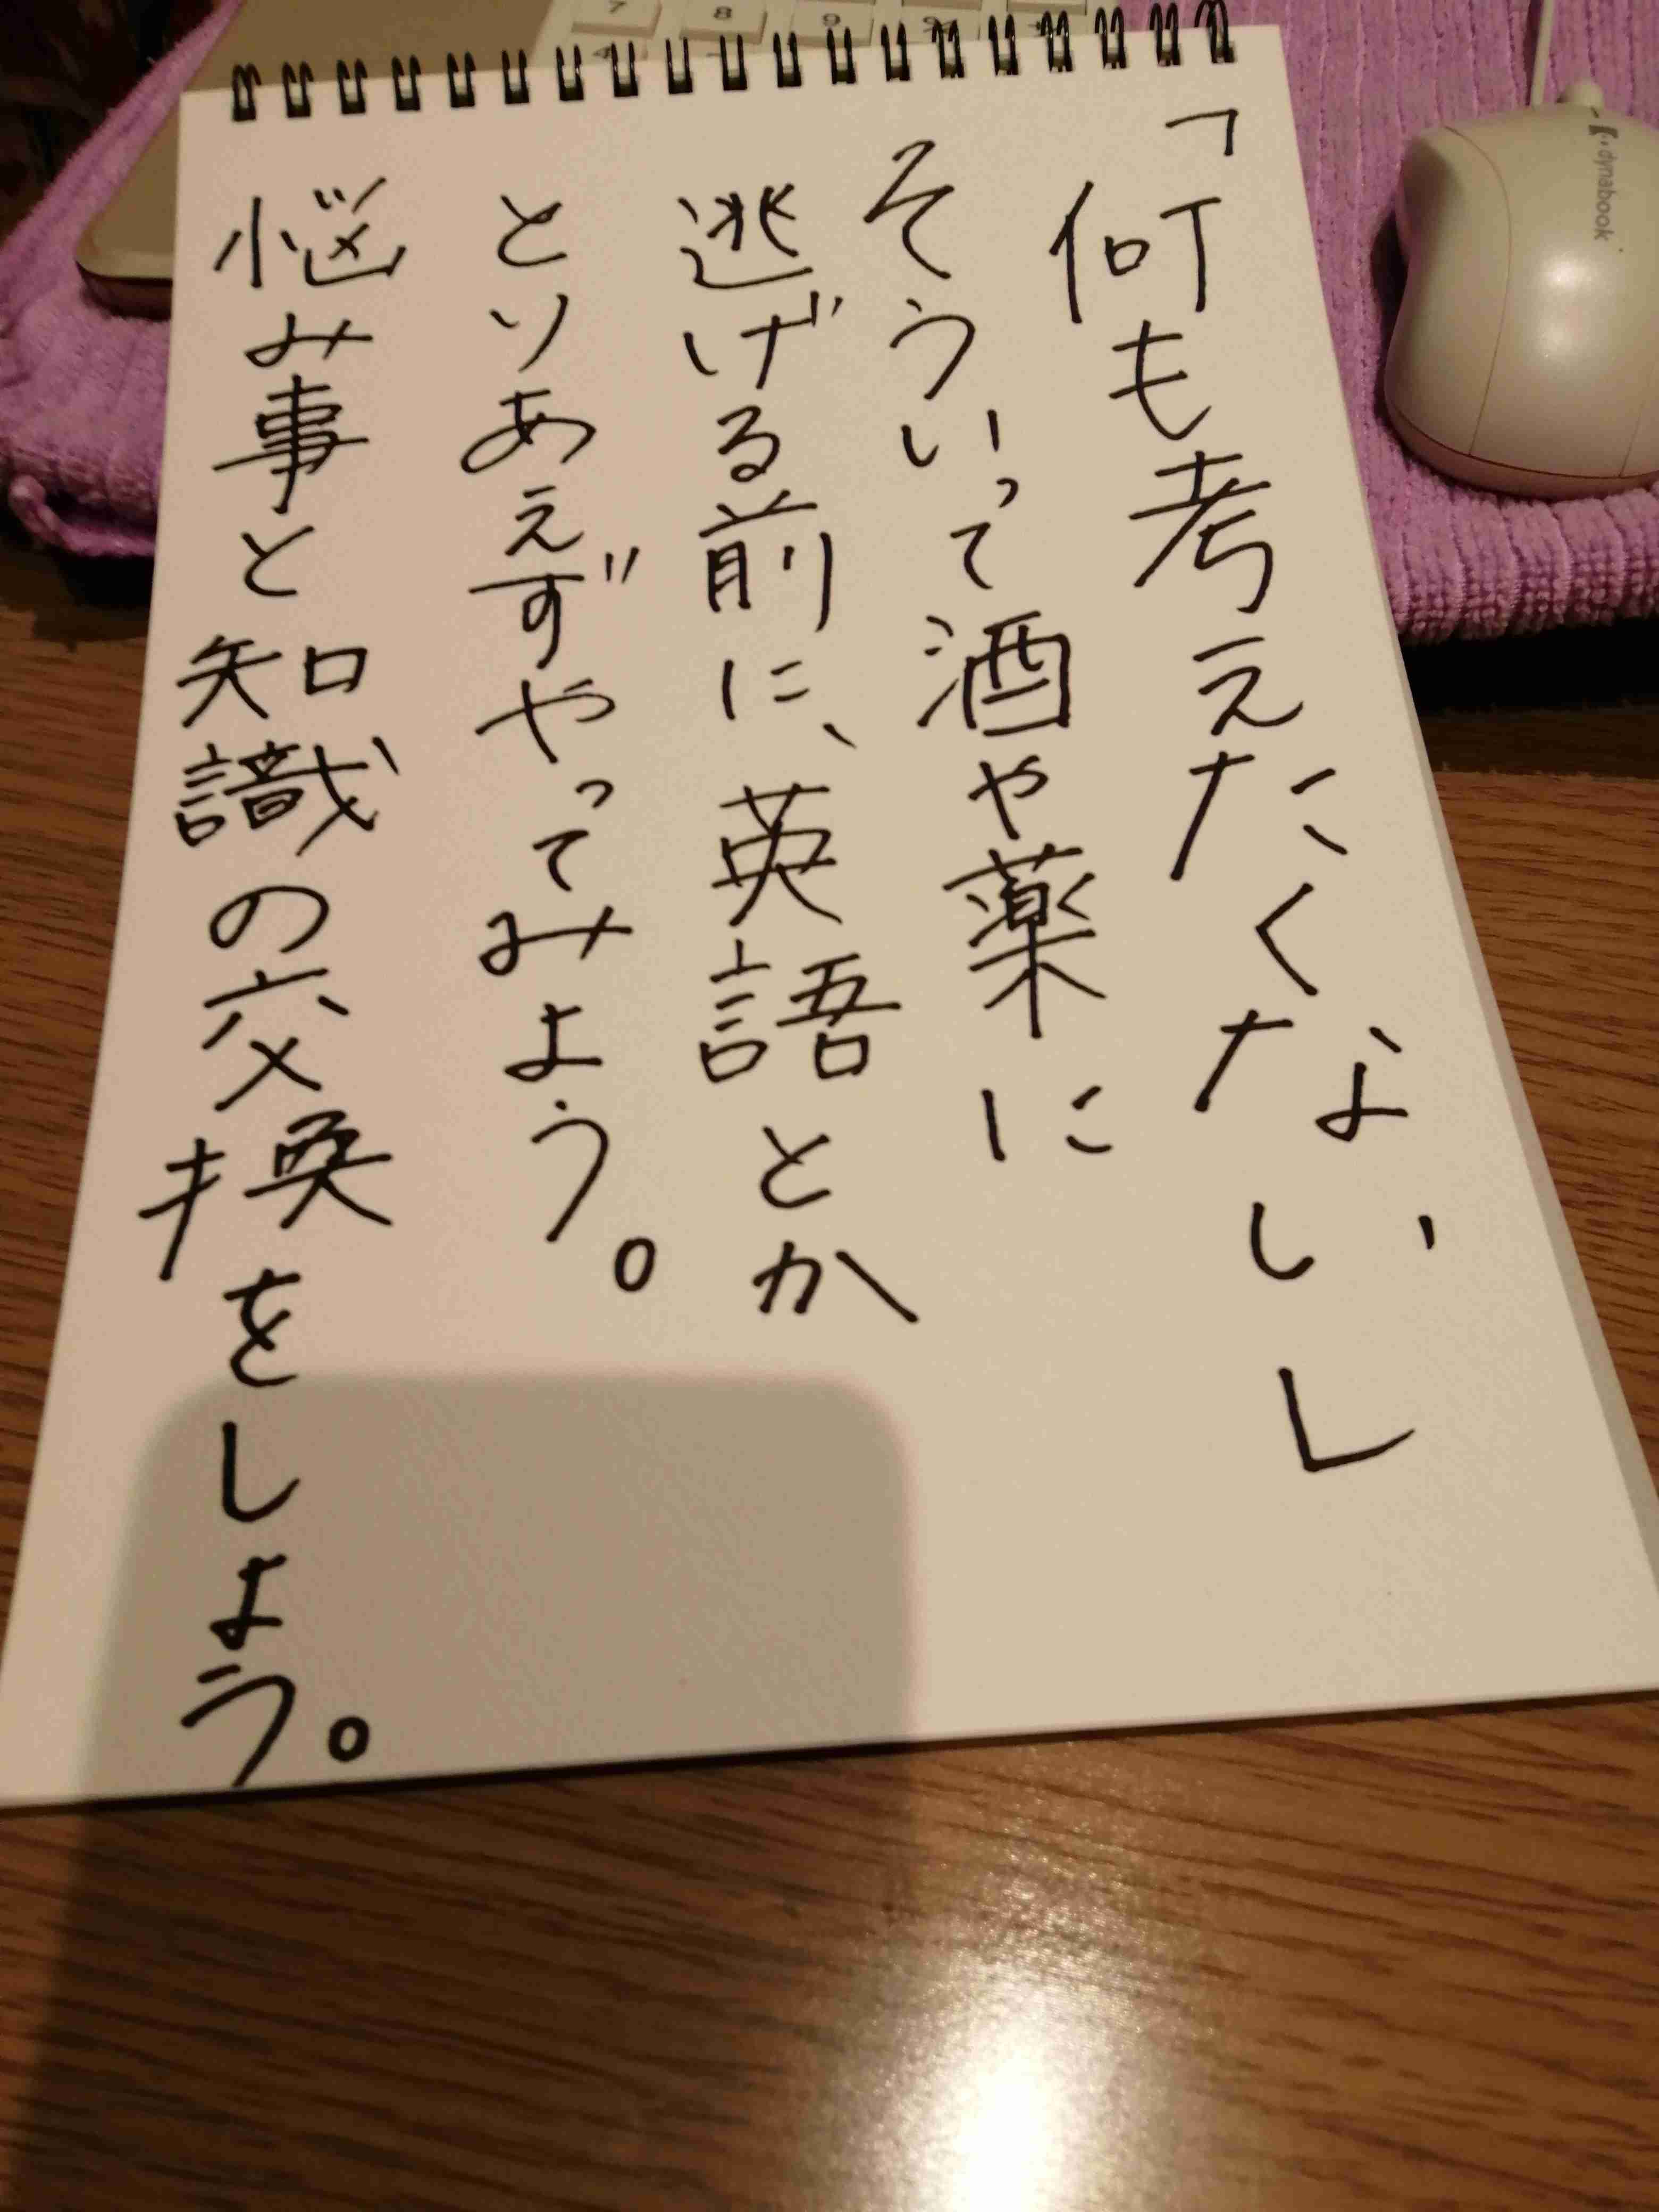 「何も考えたくない」
そういって酒や薬に
逃げる前に、英語とか
とりあえずやってみよう。
悩み事と知識の交換をしよう。
dynabook
7
8
9